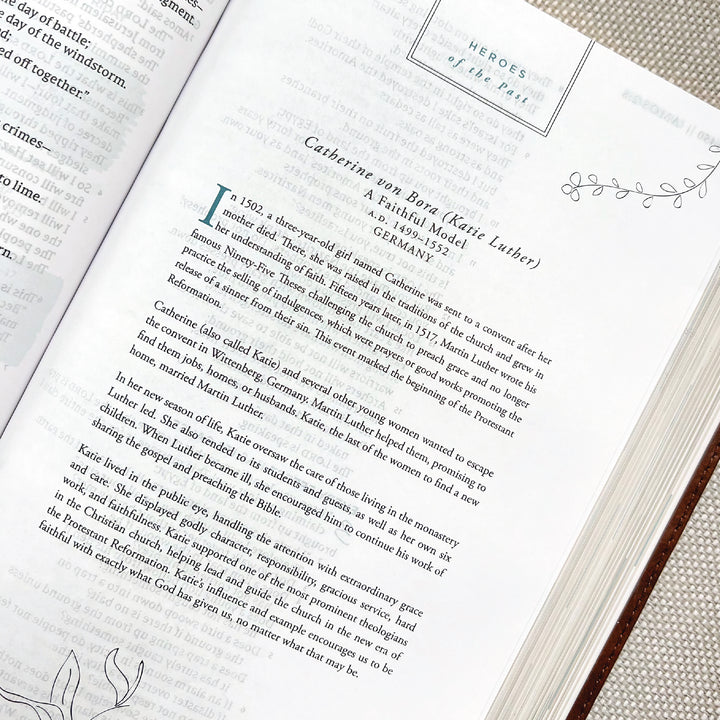 e day of battle;
e day of the windstorm.
ed off together."
crimes–
to lime.
HEROES
of the Past
Catherine von Bora (Katie Luther)
A Faithful Model
A.D. 1499–1552
GERMANY
In 1502, a three-year-old girl named Catherine was sent to a convent after her
mother died. There, she was raised in the traditions of the church and grew in
her understanding of faith. Fifteen years later, in 1517, Martin Luther wrote his
famous Ninety-Five Theses challenging the church to preach grace and no longer
practice the selling of indulgences, which were prayers or good works promoting the
release of a sinner from their sin. This event marked the beginning of the Protestant
Reformation.
Catherine (also called Katie) and several other young women wanted to escape
the convent in Wittenberg, Germany. Martin Luther helped them, promising to
find them jobs, homes, or husbands. Katie, the last of the women to find a new
home, married Martin Luther.
In her new season of life, Katie oversaw the care of those living in the monastery
Luther led. She also tended to its students and guests, as well as her own six
children. When Luther became ill, she encouraged him to continue his work of
sharing the gospel and preaching the Bible.
Katie lived in the public eye, handling the attention with extraordinary grace
and care. She displayed godly character, responsibility, gracious service, hard
work, and faithfulness. Katie supported one of the most prominent theologians
in the Christian church, helping lead and guide the church in the new era of
the Protestant Reformation. Katie's influence and example encourages us to be
faithful with exactly what God has given us, no matter what that may be.